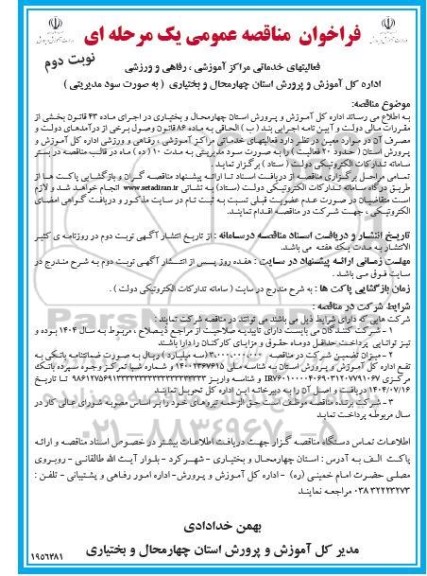 فراخوان مناقصه عمومی یک مرحله ای
نوبت دوم
فعالیتهای خدماتی مراکز آموزشی ، رفاهی و ورزشی
اداره کل آموزش و پرورش استان چهارمحال و بختیاری ( به صورت سود مدیریتی )
موضوع مناقصه:
به اطلاع می رساند اداره کل آموزش و پرورش استان چهارمحال و بختیاری در اجرای ماده ۴۳ قانون بخشی از
مقررات مالی دولت و آیین نامه اجرایی بند ( ب ) الحاقی به ماده ۸۶ قانون وصول برخی از درآمدهای دولت و
مصرف آن در موارد معین در نظر دارد فعالیتهای خدماتی مراکز آموزشی ، رفاهی و ورزشی اداره کل آموزش و
پرورش استان ( حدود ۲۰ فعالیت ) را به صورت سود مدیریتی به مدت ۱۰ ( ده ) ماه در قالب مناقصه در بستر
سامانه تدارکات الکترونیکی دولت ( ستاد ) برگزار نماید .
تمامی مراحل برگزاری مناقصه از دریافت اسناد تا ارائه پیشنهاد مناقصه گران و بازگشایی پاکت ها از
طریق درگاه سامانه تدارکات الکترونیکی دولت (ستاد) به نشانی www.setadiran.ir انجام خواهد شد و لازم
است متقاضیان در صورت عدم عضویت قبلی نسبت به ثبت نام در سایت مذکور و دریافت گواهی امضای
الکترونیکی ، جهت شرکت در مناقصه اقدام نمایند.
تاریخ انتشار و دریافت اسناد مناقصه درسامانه : از تاریخ انتشار آگهی نوبت دوم در روزنامه ی کثیر
الانتشار به مدت یک هفته می باشد.
مهلت زمانی ارائه پیشنهاد در سایت : هفده روز پس از انتشار آگهی نوبت دوم به شرح مندرج در
سایت فوق می باشد .
زمان بازگشایی پاکت ها : به شرح مندرج در سایت ( سامانه تدارکات الکترونیکی دولت ) .
شرایط شرکت در مناقصه :
شرکت هایی که دارای شرایط ذیل می باشند می توانند در مناقصه شرکت نمایند :
۱ – شرکت کنندگان می بایست دارای تاییدیه صلاحیت از مراجع ذیصلاح ، مربوط به سال ۱۴۰۴ بوده و
نیز توانایی پرداخت حداقل دوماه حقوق و مزایای کارکنان را دارا باشند
۲ – میزان تضمین شرکت در مناقصه ۳،۰۰۰،۰۰۰،۰۰۰ (سه میلیارد) ریال به صورت ضمانتنامه بانکی به
نفع اداره کل آموزش و پرورش استان به شناسه ملی ۱۴۰۰۲۳۶۷۶۱۵ و شماره شبا تمرکز وجوه سپرده بانک
مرکزی و شناسه واریز تا تاریخ
۱۴۰۴/۰۷/۱۶ دریافت و اصل آن را به دبیرخانه این اداره کل تحویل نمایند
۳ – شرکت برنده مناقصه موظف است حق الزحمه نیروهای خود را بر اساس مصوبه شورای عالی کار در
سال مربوطه پرداخت نماید
اطلاعات تماس دستگاه مناقصه گزار جهت دریافت اطلاعات بیشتر در خصوص اسناد مناقصه و ارائه
پاکت الف به آدرس : استان چهارمحال و بختیاری – شهرکرد – بلوار آیت الله طالقانی – روبروی
مصلی حضرت امام خمینی (ره) – اداره کل آموزش و پرورش- اداره امور رفاهی و پشتیبانی – تلفن :
۰۳۸۳۲۲۲۳۲۷۳ مراجعه نمایند
بهمن خدادادی
مدیر کل آموزش و پرورش استان چهارمحال و بختیاری
۱۹۵۶۳۸۱
۰۲۱-۸۸۳۴۹۶۷۰-۵